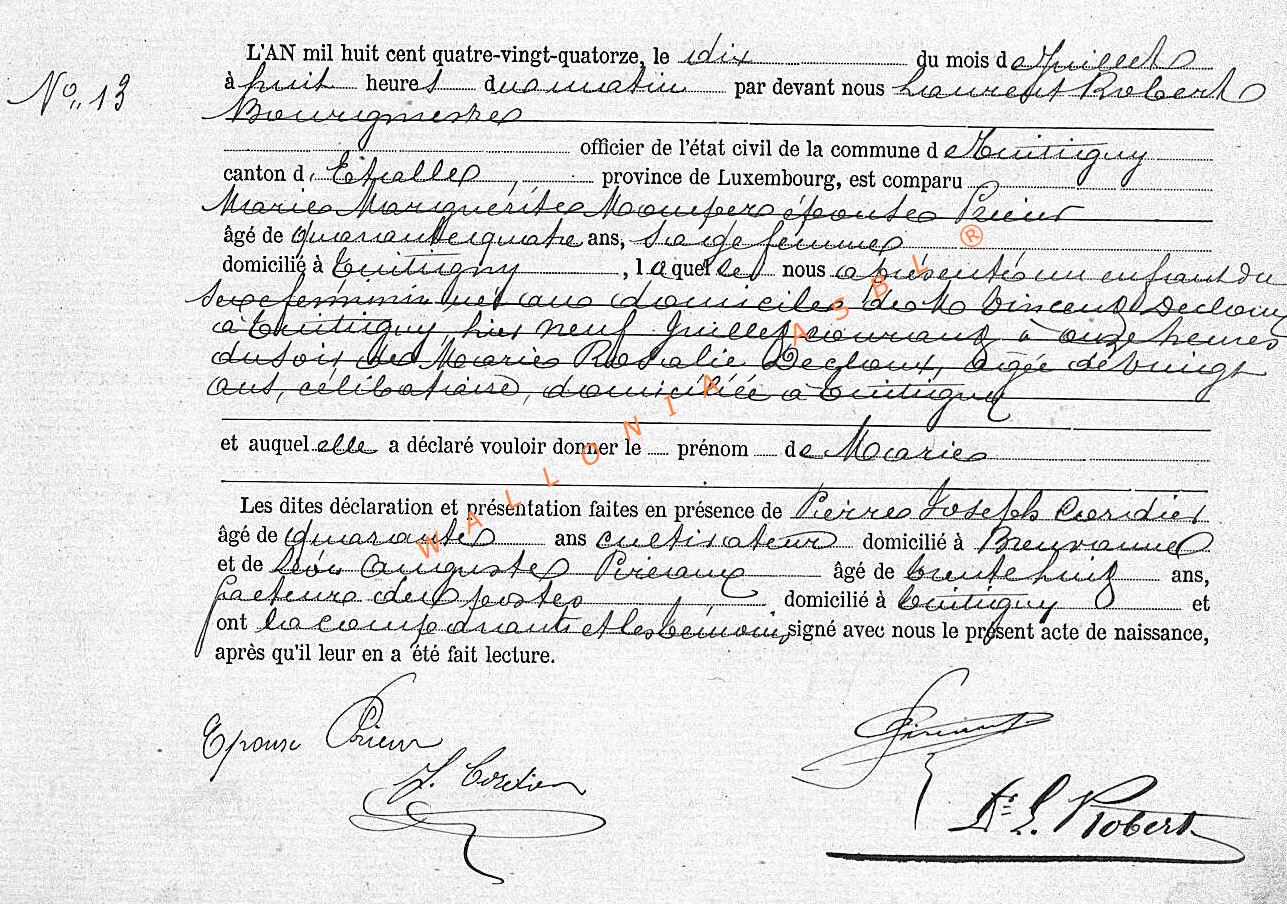 L'AN mil huit cent quatre-vingt-quatorze, le dix du mois de Juillet
No. 13
à huit heures du matin par devant nous Laurent Robert
Bourgmestre
officier de l'état civil de la commune de Tintigny
canton d'Etalle, province de Luxembourg, est comparu
Marie Marguerite épouse Prieur
âgé de quarante quatre ans, sage femme
domicilié à Tintigny, laquelle nous a présenté un enfant du
sexe féminin né au domicile de M Vincent Decloux
à Tintigny, hier neuf Juillet courant, à onze heures
du soir, de Marie Rosalie Decloux, agée de vingt
ans, célibataire, domiciliée à Tintigny
et auquel elle a déclaré vouloir donner le prénom de Marie
Les dites déclaration et présentation faites en présence de Pierre Joseph
âgé de quarante ans cultivateur domicilié à Breuvanne
et de Auguste âgé de trente huit ans,
facteur des postes domicilié à Tintigny et
ont la comparante et les témoins signé avec nous le présent acte de naissance,
après qu'il leur en a été fait lecture.
Epouse Prieur
J.
Dr L. Robert
WALLONIA ASBL ®